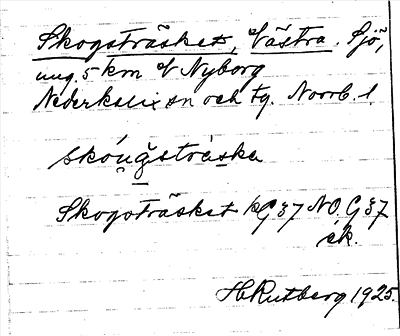 Skogsträsket, Västra. Sjö,
ung. 5 km V Nyborg
Nederkalix sn och tg. Norrb. l.
skóu̯ğstráska
Skogsträsket kG 37 NO, G 37
ek.
H Rutberg 1925.